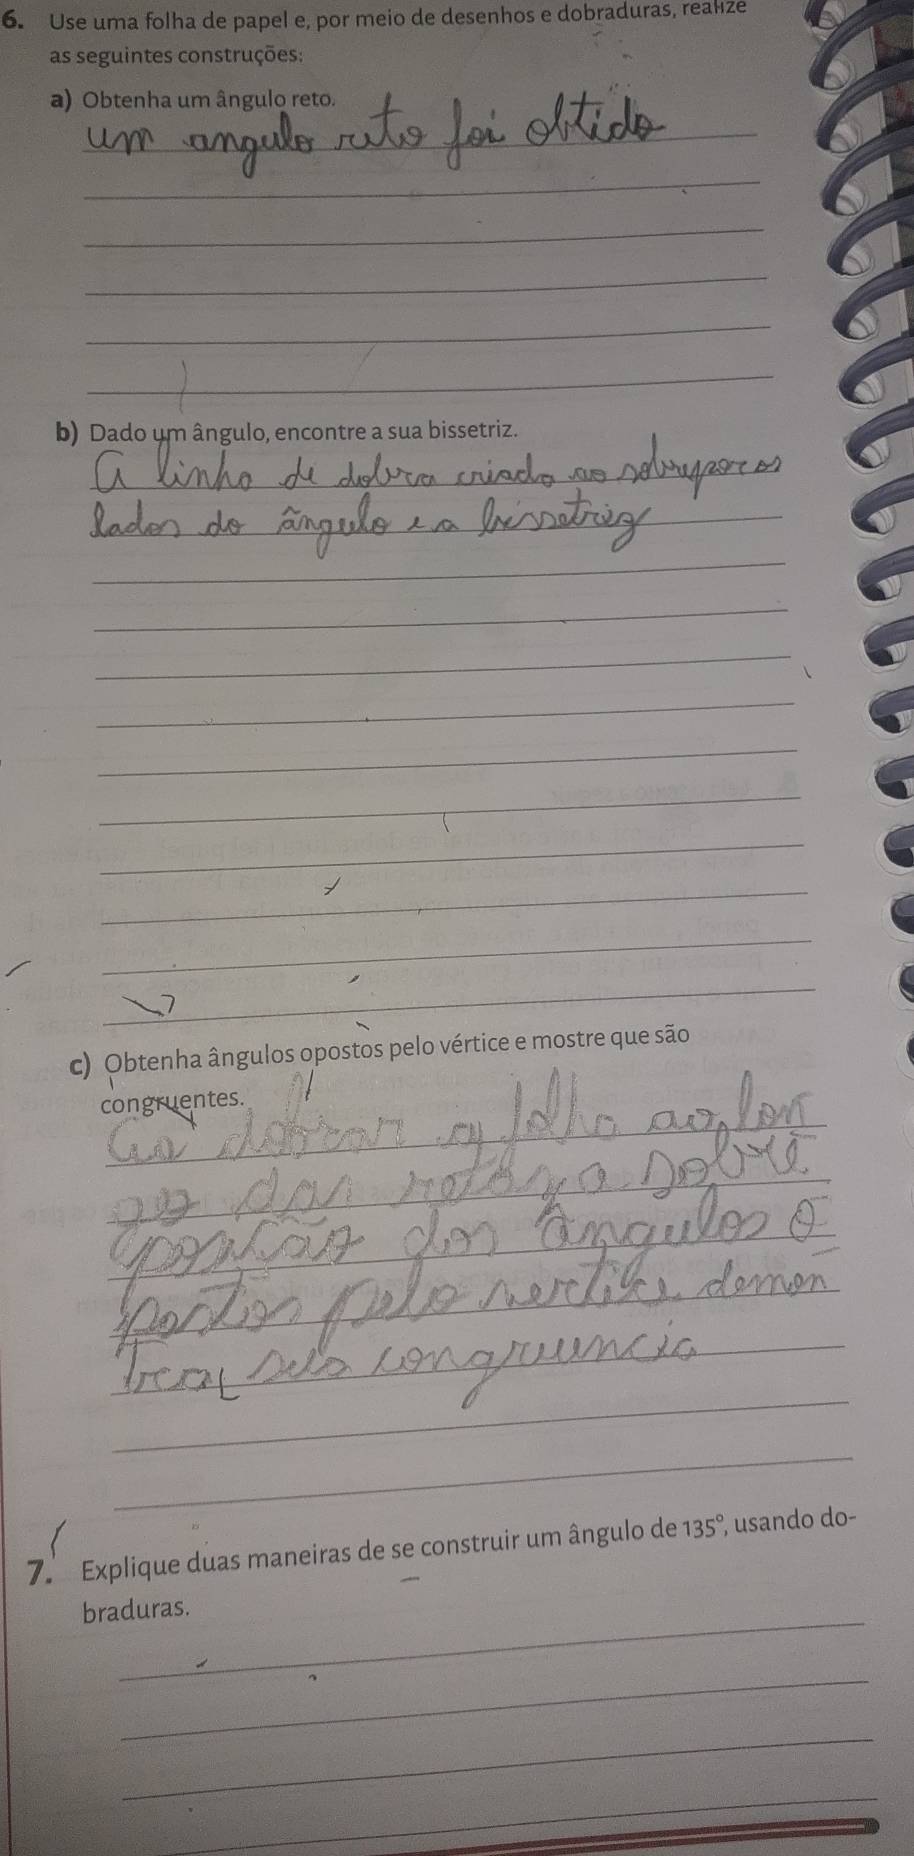 6. Use uma folha de papel e, por meio de desenhos e dobraduras, realize
as seguintes construções:
a) Obtenha um ângulo reto.
um angulo reto foi obtido
b) Dado um ângulo, encontre a sua bissetriz.
a linha de dobra criada ao sobrepor os
lados do ângulo é a bissetriz
c) Obtenha ângulos opostos pelo vértice e mostre que são
congruentes.
Ao dobrar a folha ao lon
go das retas a sobre
posição dos ângulos o
postos pelo vertice demon
trar sua congruencia
7. Explique duas maneiras de se construir um ângulo de 135°, usando do-
braduras.